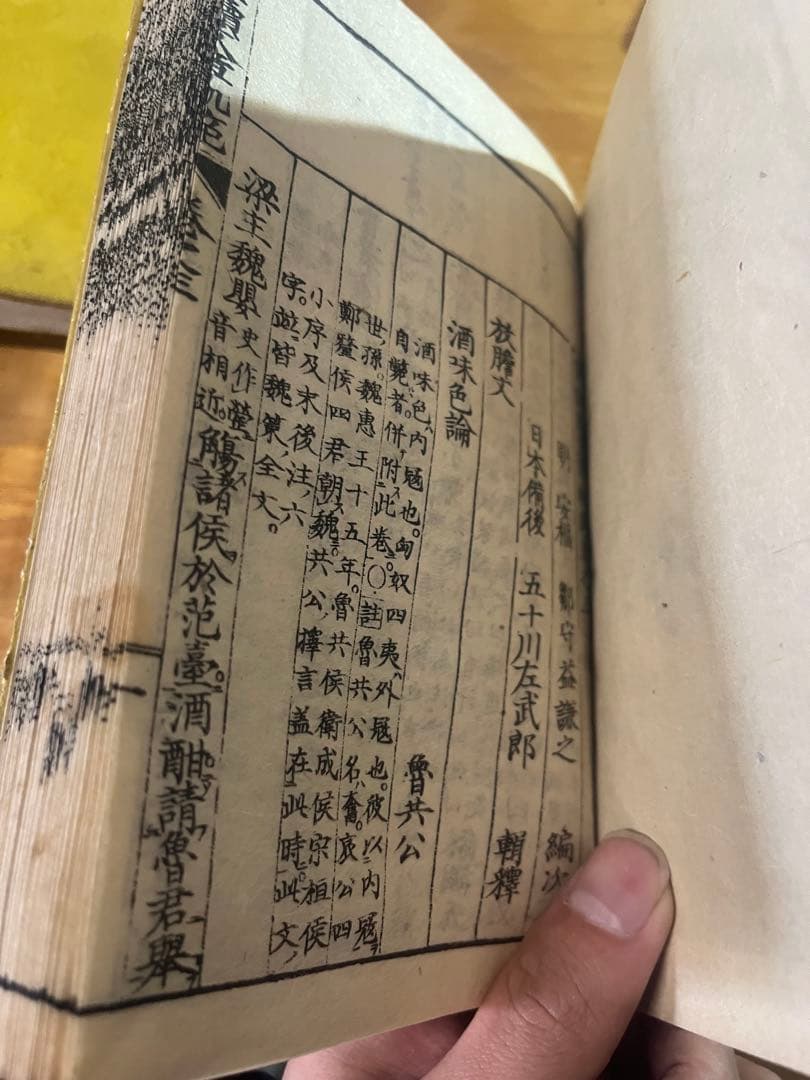 明 安福 鄒守益謙之 編次
日本備後 五十川左武郎 輯釋
放膽文
酒味色論 魯共公
酒味色、內冦也。匈奴四夷、外冦也。彼以內冦
自斃者。併附此卷。○註魯共公、名奮。哀公四
世孫。魏惠王十五年。魯共侯衛成侯宋桓侯
鄭釐侯四君朝魏。共公、擇言蓋在此時。此文、
小序及末後注、六
字。竝皆魏策、全文。
梁王魏嬰史作罃音相近。觴諸侯於范臺。酒酣請魯君舉